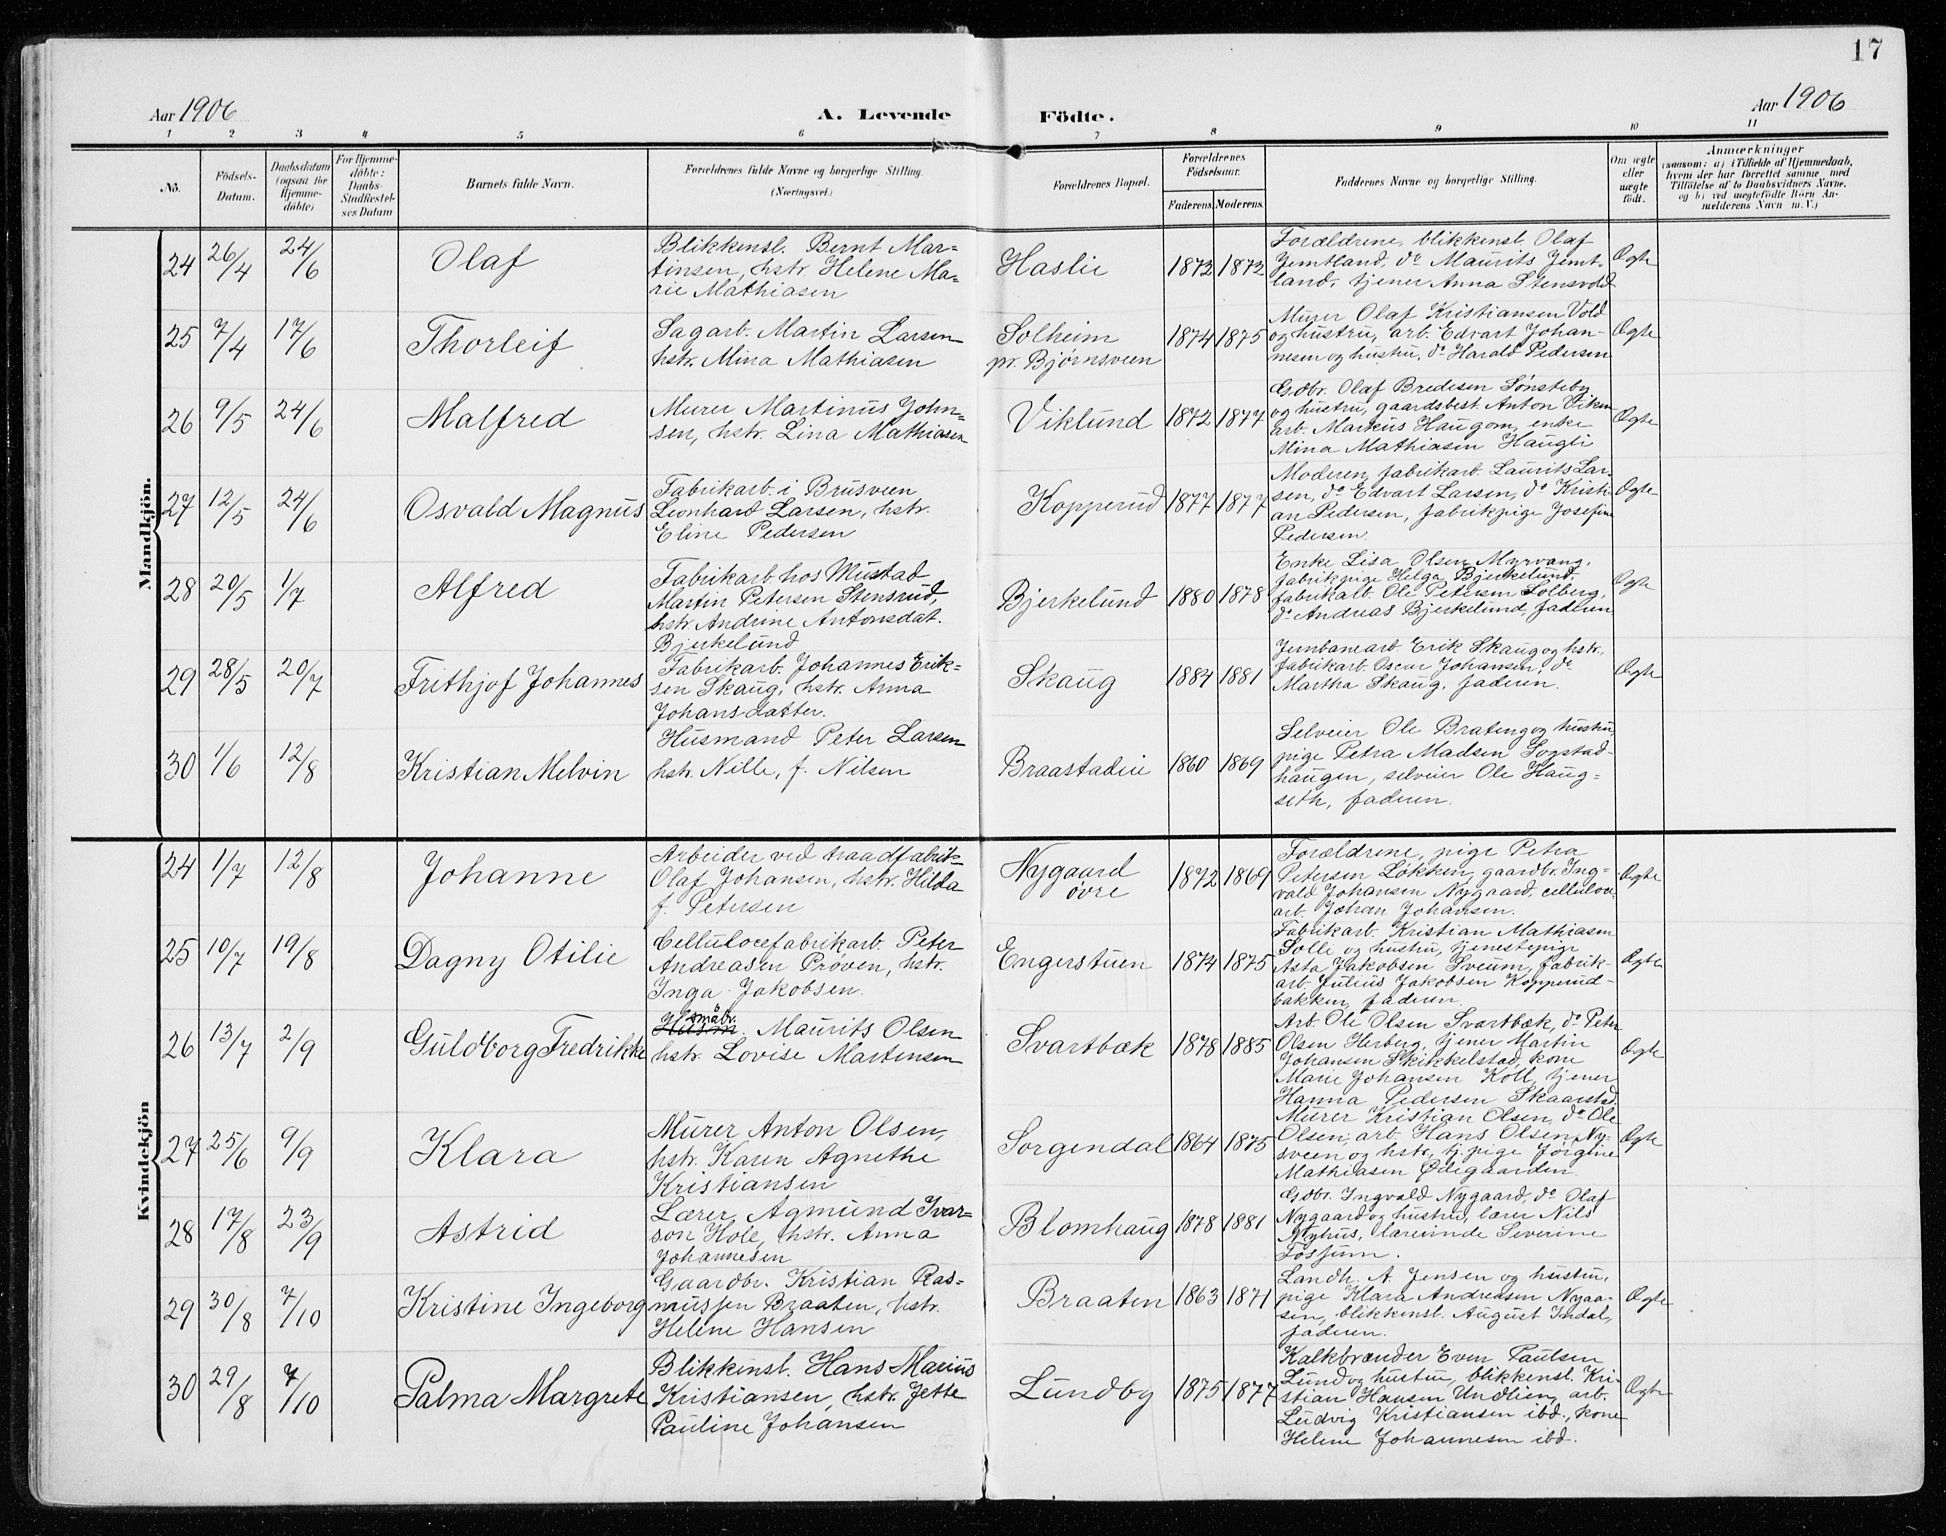 17
Aar 1906
A. Levende Födte.
Aar 1906
1 2 3 4 5 6 7 8 9 10 11
No.
Födsels-
Datum.
Daabsdatum
(ogsaa for
Hjemme-
döbte)
For Hjemme-
döbte:
Daabs-
Stadfæstel-
ses Datum
Barnets fulde Navn.
Forældrenes fulde Navne og borgerlige Stilling.
(Næringsvei.)
Forældrenes Bopæl.
Forældrenes
Födselsaar.
Faderens. Moderens.
Faddernes Navne og borgerlige Stilling.
Om ægte
eller
uægte
født.
Anmærkninger
(saasom: a) i Tilfælde af Hjemmedaab,
hvem der har forrettet samme, med
Tilföielse af to Daabsvidners Navne,
og b) ved uægtefödte Börn An-
melderens Navn m. V.)
Mandkjön.
24 26/4 24/6 Olaf
Blikkensl. Bernt Mar-
tinsen, hstr. Helene Ma-
rie Mathiasen
Haslie 1872 1872
Forældrene, blikkensl. Olaf
Jemtland, do Maurits Jemt-
land, tjener Anna Stensvold
Ægte
25 7/4 17/6 Thorleif
Sagarb. Martin Larsen
hstr. Mina Mathiasen
Solheim
pr. Bjørnsveen
1874 1875
Murer Olaf Kristiansen Vold
og hustru, arb. Edvart Johan-
nesen og hustru, do Harald Pedersen
Ægte
26 9/5 24/6 Malfred
Murer Martinus John-
sen, hstr. Lina Mathiasen
Viklund 1872 1877
Gdbr. Olaf Bredesen Sønsteby
og hustru, gaardsbest. Anton Viken
arb. Markus Haugom, enke
Mina Mathiasen Haugli
Ægte
27 12/5 24/6 Osvald Magnus
Fabrikarb. i Brusveen
Leonhard Larsen, hstr.
Eline Pedersen
Kopperud 1877 1877
Moderen, fabrikarb. Laurits Lar-
sen, do Edvart Larsen, do Kristi-
an Pedersen, fabrikpige Josefine
Pedersen.
Ægte
28 20/5 1/7 Alfred
Fabrikarb. hos Mustad
Martin Petersen Stensrud,
hstr. Andrine Antonsdat.
Bjerkelund
Bjerkelund 1880 1878
Enke Lisa Olsen Myrvang,
fabrikpige Helga Bjerkelund,
fabrikarb. Ole Petersen Solberg,
do Andreas Bjerkelund, faderen
Ægte
29 28/5 20/7 Frithjof Johannes
Fabrikarb. Johannes Erik-
sen Skaug, hstr. Anna
Johansdatter.
Skaug 1884 1881
Jernbanearb. Erik Skaug og hstr.,
fabrikarb. Oscar Johansen, do
Martha Skaug, faderen.
Ægte
30 1/6 12/8 Kristian Melvin
Husmand Peter Larsen
hstr. Nille, f. Nilsen
Braastadeie 1860 1869
Selveier Ole Brateng og hustru,
pige Petra Madsen Sogstad-
haugen, selveier Ole Haug-
seth, faderen.
Kvindekjön
24 1/7 12/8 Johanne
Arbeider ved traadfabrik
Olaf Johansen, hstr. Hilda
f. Petersen
Nygaard
øvre
1872 1869
Forældrene, pige Petra
Petersen Løkken, gaardbr. Ing-
vald Johansen Nygaard, celluloce-
arb. Johan Johansen.
Ægte
25 10/7 19/8 Dagny Otilie
Cellulocefabrikarb. Peter
Andreasen Prøven, hstr.
Inga Jakobsen.
Engerstuen 1874 1875
Fabrikarb. Kristian Mathiasen
Solle og hustru, tjenestepige
Asta Jakobsen Sveum, fabrik-
arb. Julius Jakobsen Kopperud-
bakken, faderen.
Ægte
26 13/7 2/9 Guldborg Fredrikke
småbr.
Husm. Maurits Olsen
hstr. Lovise Martensen
Svartbæk 1878 1885
Arb. Ole Olsen Svartbæk, do Peter
Olsen Herberg, tjener Martin
Johansen Skikkelstad, kone
Marie Johansen Koll, tjener
Hanna Pedersen Skaarstad.
Ægte
27 25/6 9/9 Klara
Murer Anton Olsen,
hstr. Karen Agnethe
Kristiansen
Sorgendal 1864 1875
Murer Kristian Olsen, do Ole
Olsen, arb. Hans Olsen Ny-
sveen og hstr., tj.pige Jørgine
Mathiasen Ødegaarden
Ægte
28 17/8 23/9 Astrid
Lærer Agmund Ivar-
son Hole, hstr. Anna
Johannesen
Blomhaug 1878 1881
Gdbr. Ingvald Nygaard, do Olaf
Nygaard og hustru, lærer Nils
Nyhus, lærerinde Severine
Fossum.
29 30/8 7/10 Kristine Ingeborg
Gaardbr. Kristian Ras-
mussen Braaten, hstr.
Helene Hansen
Braaten 1863 1871
Landh. A. Jensen og hustru,
pige Klara Andreasen Nyaa-
sen, blikkensl. August Indal,
faderen.
Ægte
30 29/8 7/10 Palma Margrete
Blikkensl. Hans Marius
Kristiansen, hstr. Jette
Pauline Johansen
Lundby 1875 1877
Kalkbrænder Even Paulsen
Lund og hustru, blikkensl. Kri-
stian Hansen Undlien, arb.
Ludvig Kristiansen ibd., kone
Helene Johannesen ibd.
Ægte